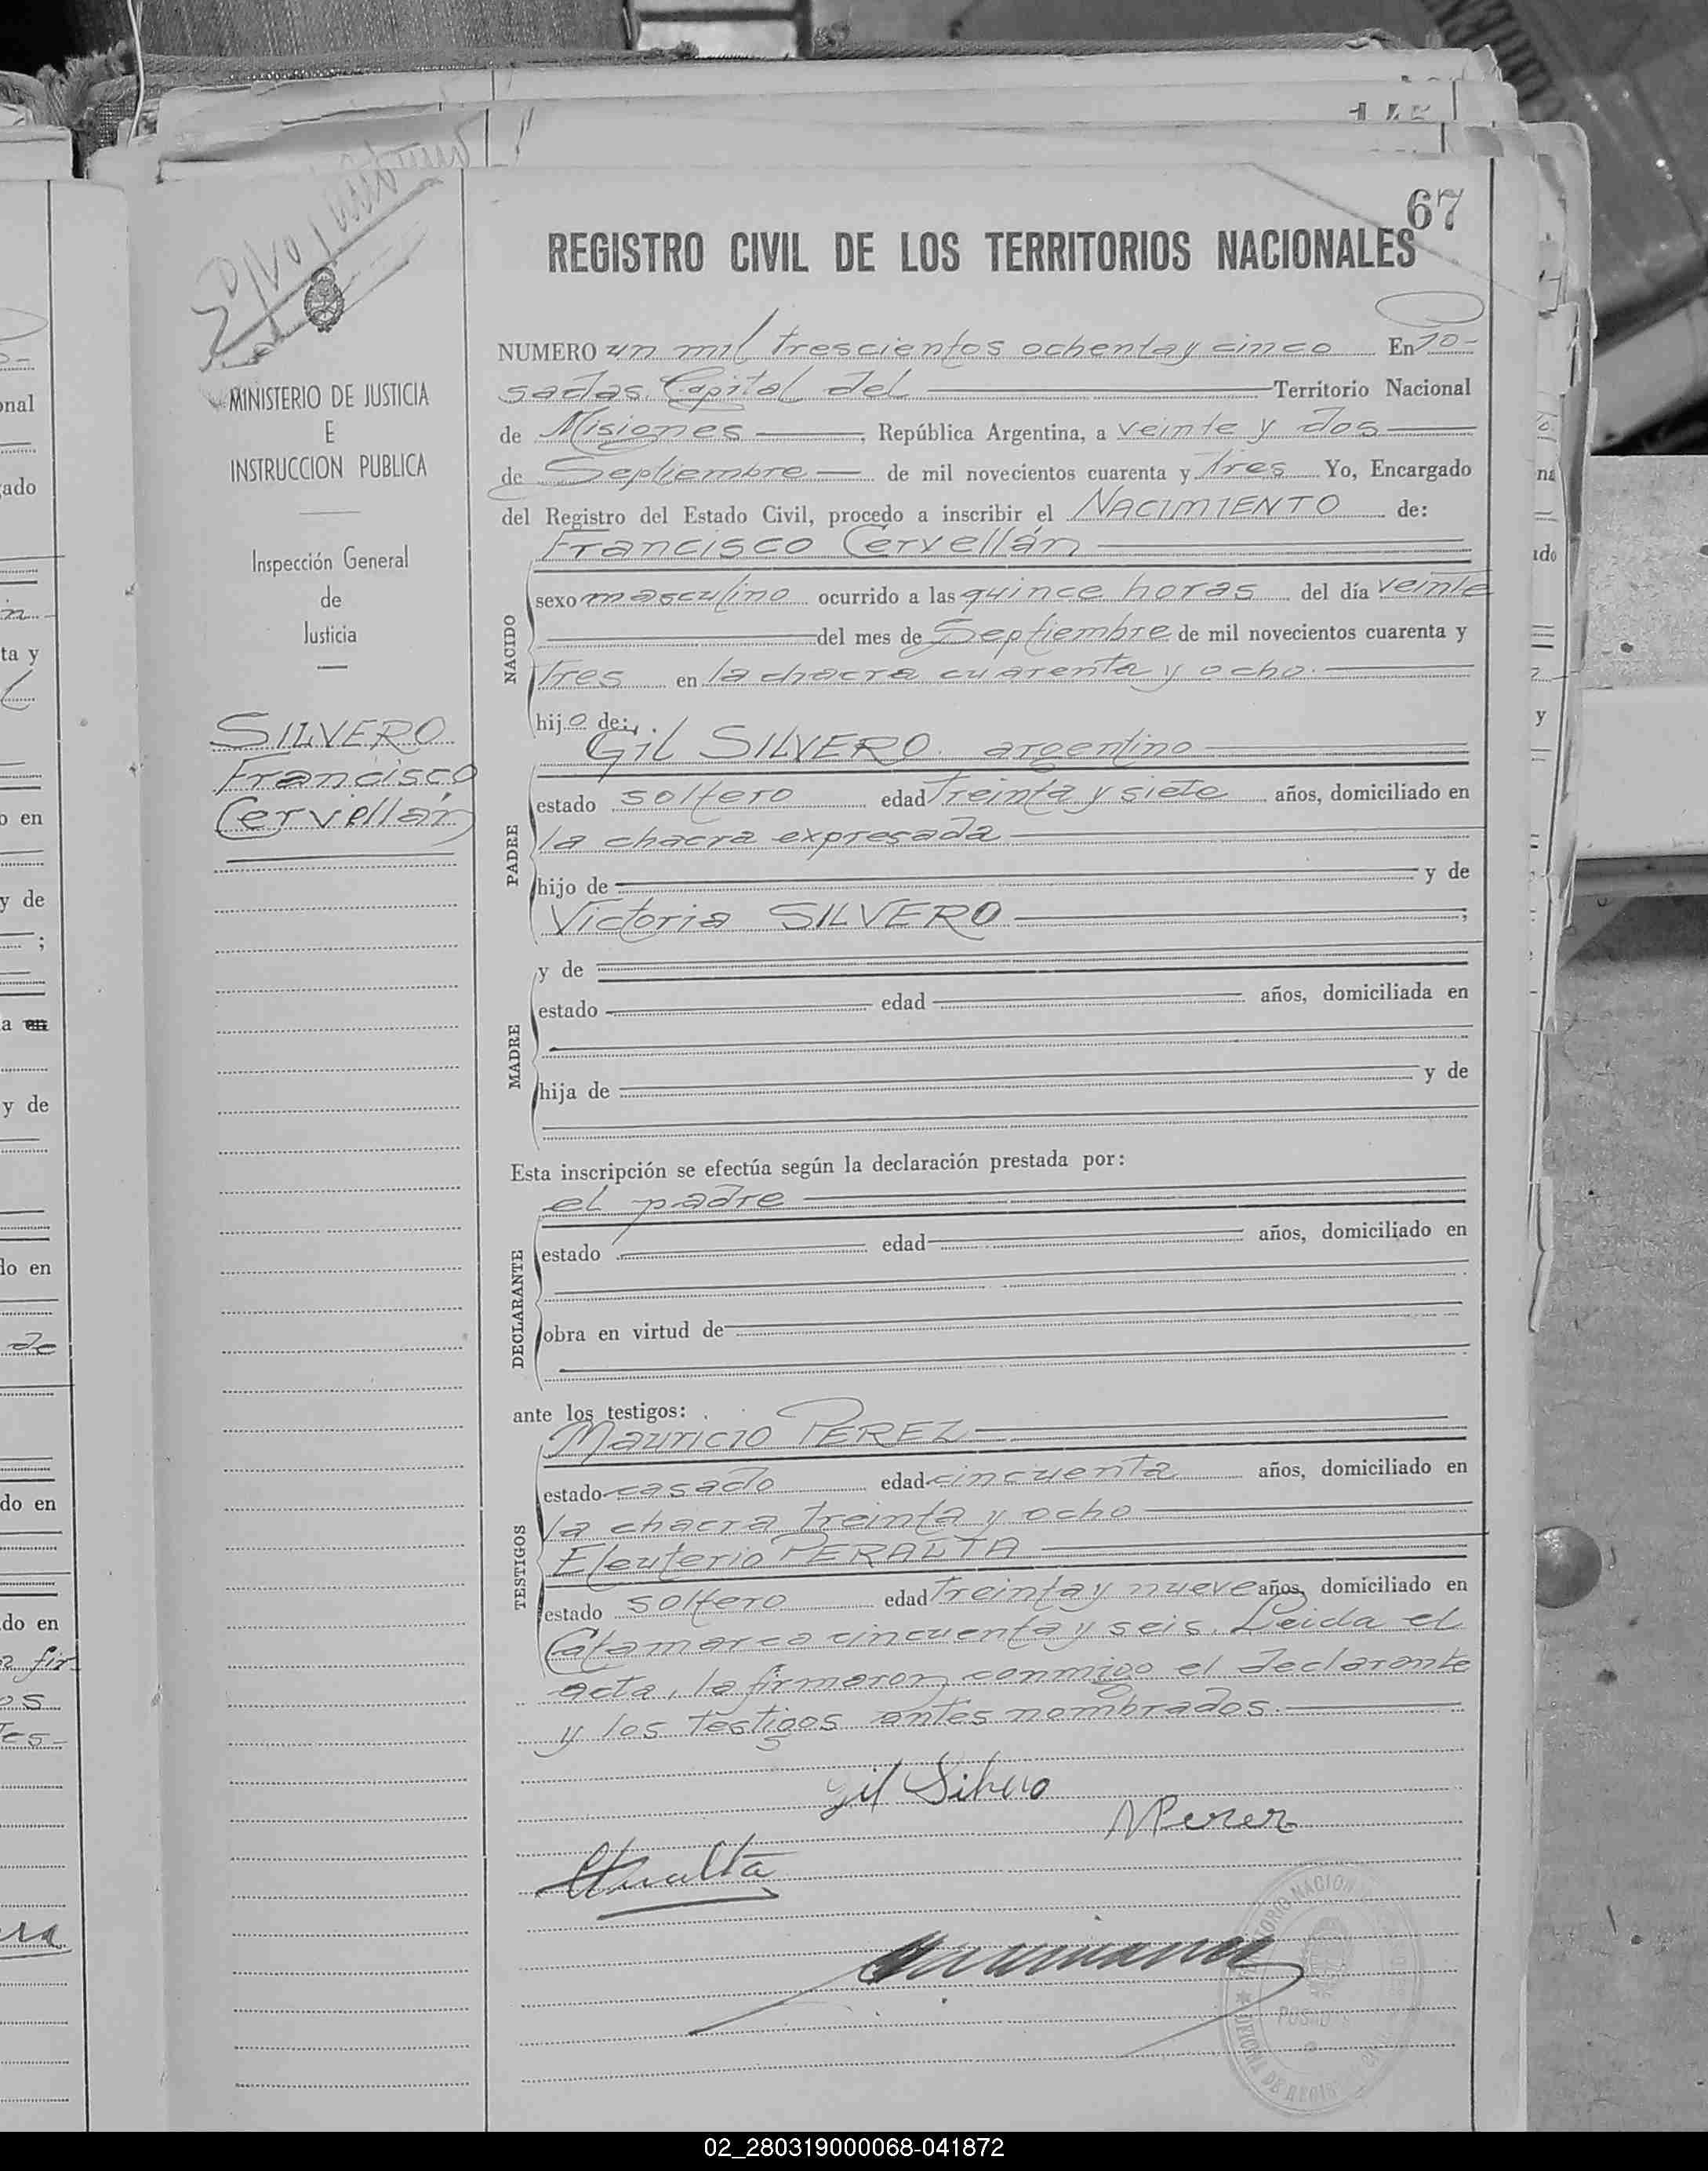 67
REGISTRO CIVIL DE LOS TERRITORIOS NACIONALES
MINISTERIO DE JUSTICIA
E
INSTRUCCION PUBLICA
Inspección General
de
Justicia
SILVERO
Francisco
Cervellán
NUMERO un mil trescientos ochenta y cinco En Po-
sadas, Capital del Territorio Nacional
de Misiones, República Argentina, a veinte y dos
de Septiembre de mil novecientos cuarenta y tres Yo, Encargado
del Registro del Estado Civil, procedo a inscribir el NACIMIENTO de:
Francisco Cervellán
NACIDO
sexo masculino ocurrido a las quince horas del día veinte
del mes de Septiembre de mil novecientos cuarenta y
tres en la chacra cuarenta y ocho.
hijo de:
Gil SILVERO. argentino
PADRE
estado soltero edad treinta y siete años, domiciliado en
la chacra expresada
hijo de y de
Victoria SILVERO ;
MADRE
y de
estado edad años, domiciliada en
hija de y de
Esta inscripción se efectúa según la declaración prestada por:
el padre
DECLARANTE
estado edad años, domiciliado en
obra en virtud de
ante los testigos:
Mauricio PEREZ
TESTIGOS
estado casado edad cincuenta años, domiciliado en
la chacra treinta y ocho
Eleuterio PERALTA
estado soltero edad treinta y nueve años, domiciliado en
Catamarca cincuenta y seis. Leida el
acta, la firmaron conmigo el declarante
y los testigos antes nombrados.
Gil Silvero
MPerez
EPeralta
02_280319000068-041872